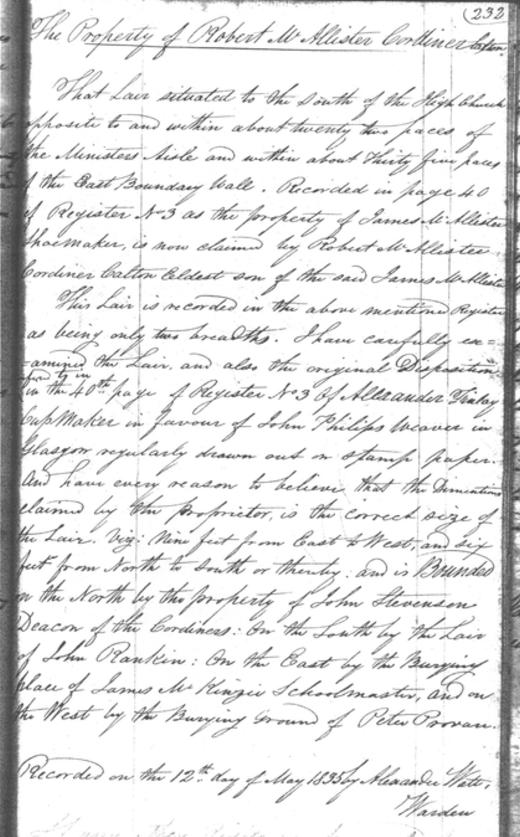 (232
The Property of Robert McAllister Cordiner Calton
That Lair situated to the South of the High Church
opposite to and within about twenty two paces of
the Ministers Aisle and within about Thirty five paces
of the East Boundary Wall. Recorded in page 40
of Register No 3 as the property of James McAllister
Shoemaker, is now claimed by Robert McAllister
Cordiner Calton Eldest son of the said James McAllister
This Lair is recorded in the above mentioned Register
as being only two breadths. I have carefully ex=
=amined the Lair, and also the original Disposition
in the 40th page of Register No 3 Of Alexander Finlay
Cap Maker in favour of John Philips Weaver in
Glasgow regularly drawn out on stamp paper.
And have every reason to believe that the Dimentions
claimed by the proprietor, is the correct size of
the Lair. Viz: Nine feet from East to West, and six
feet from North to South or thereby: and is Bounded
on the North by the property of John Stevenson
Deacon of the Cordiners: On the South by the Lair
of John Rankin: On the East by the Burying
place of James McKinzie Schoolmaster, and on
the West by the Burying Ground of Peter Provan.
Recorded on the 12th day of May 1835 by Alexander Watt,
Warden